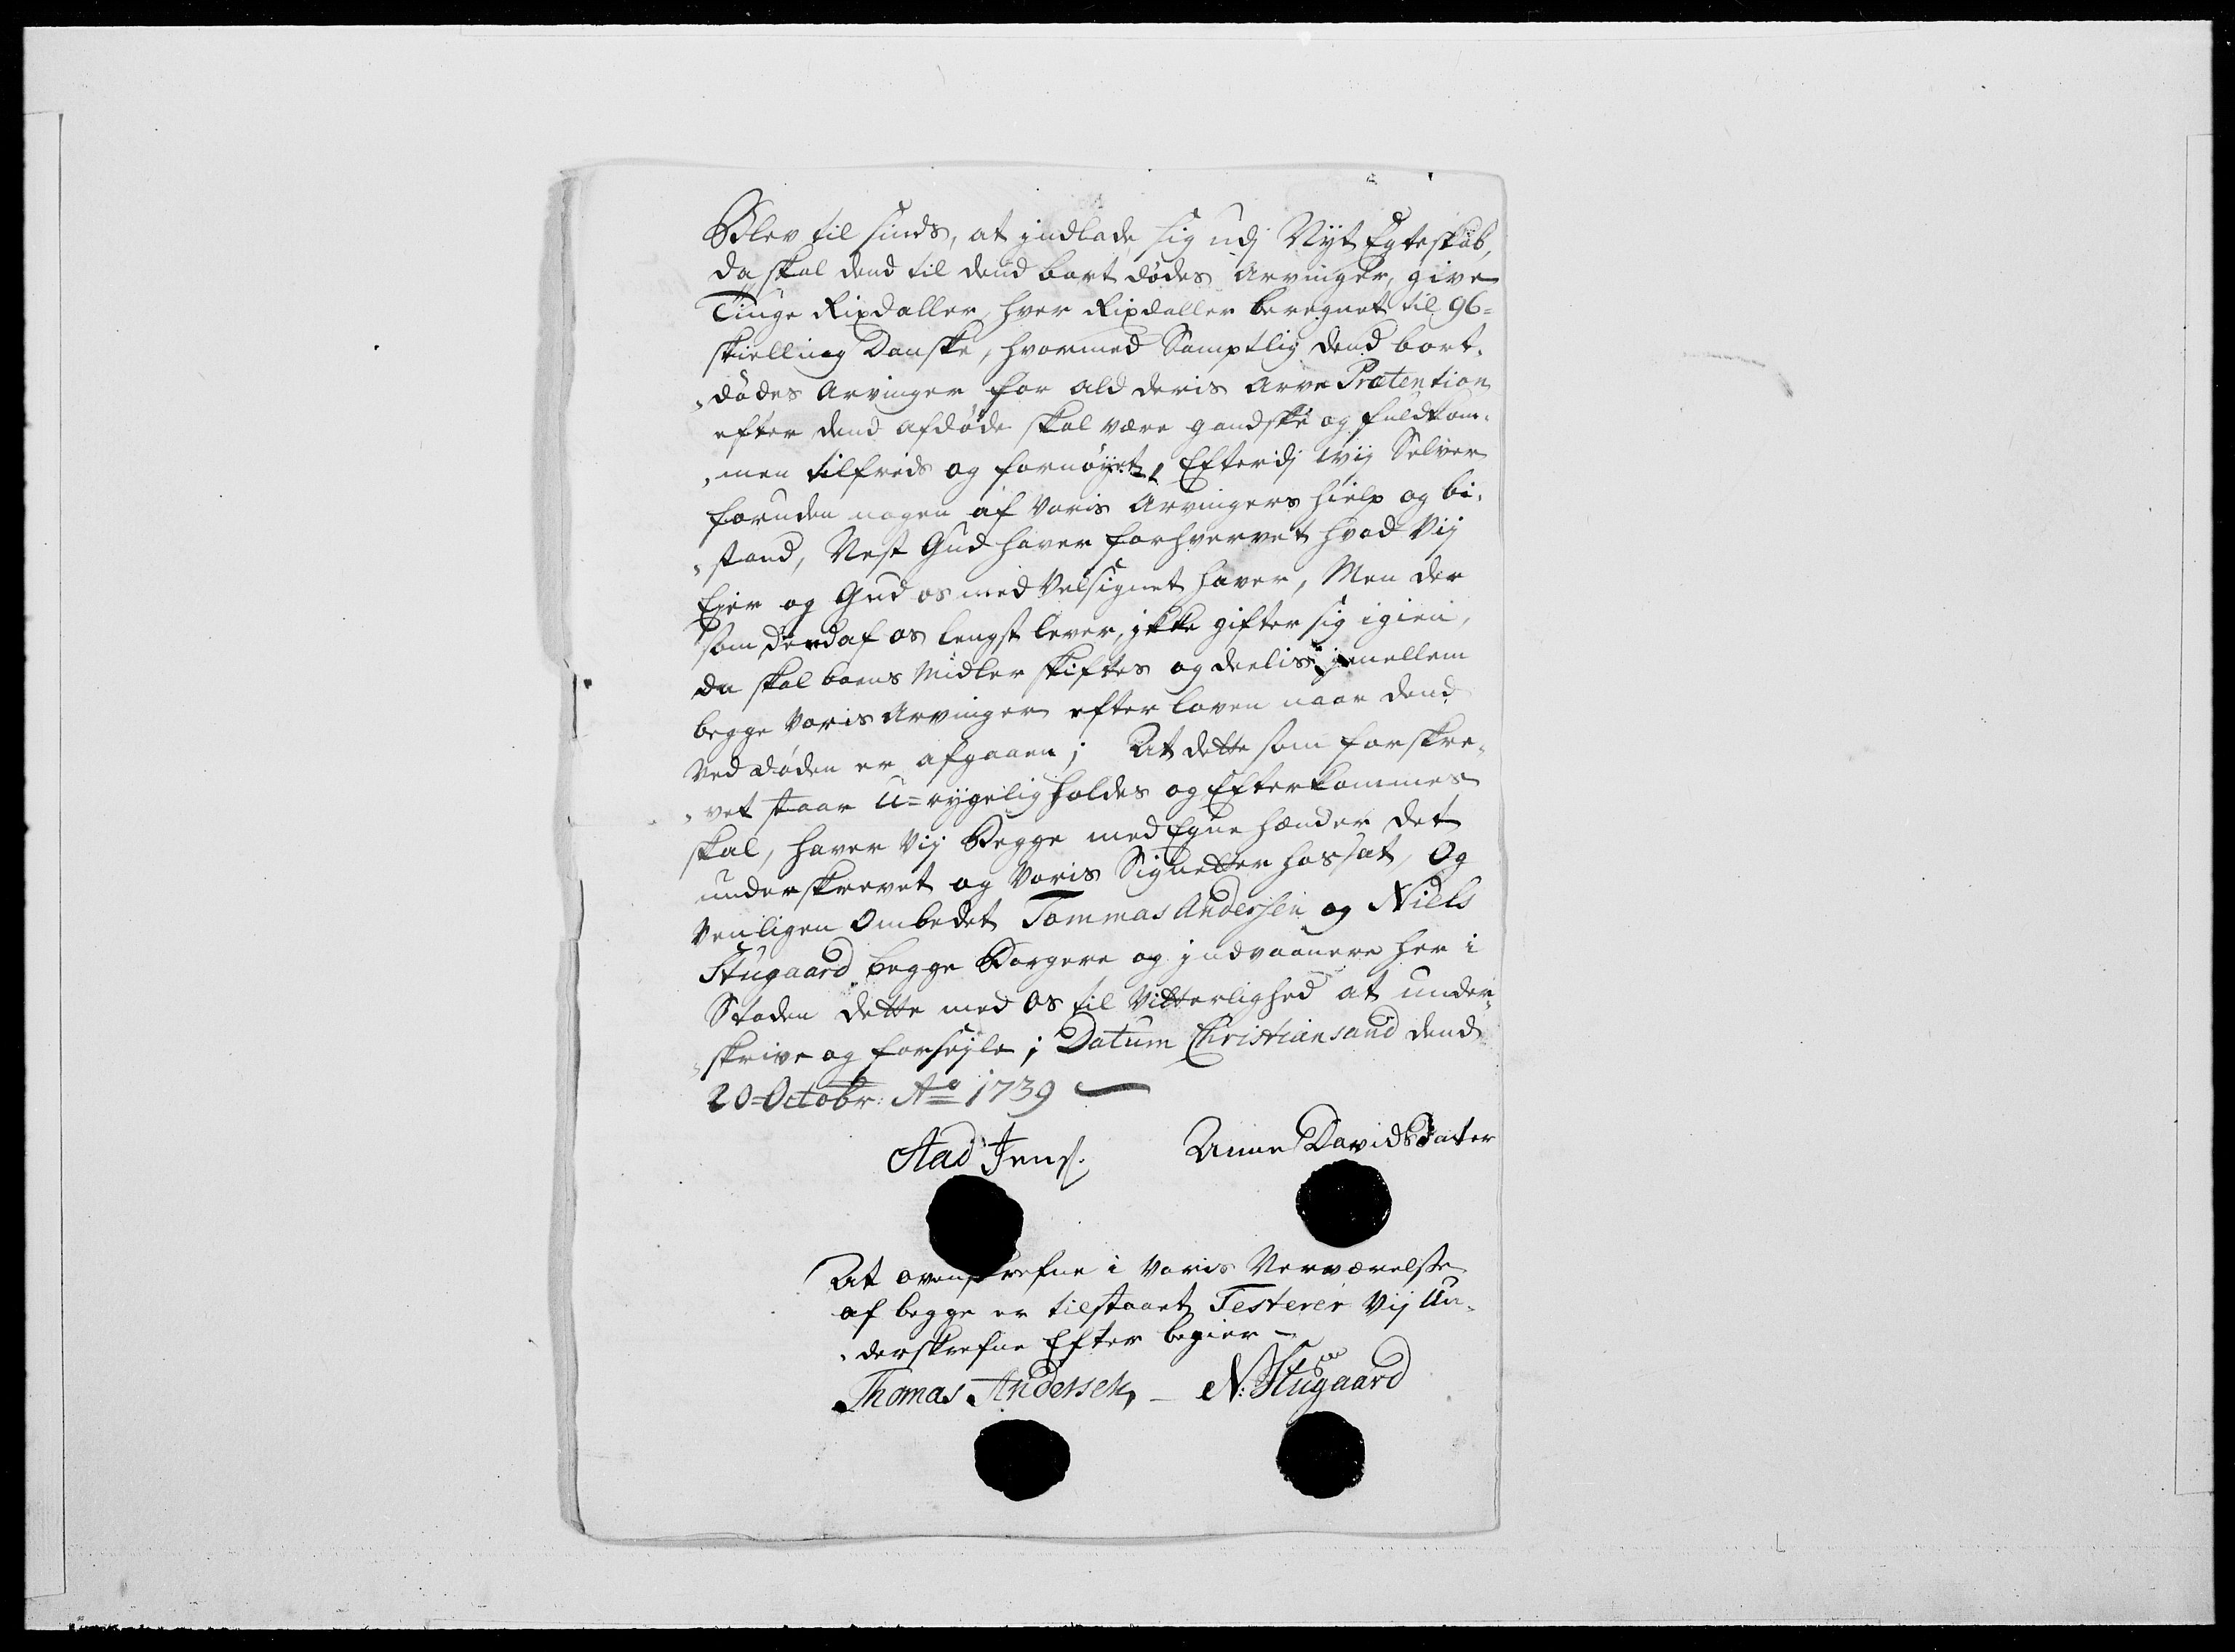 Blev til sinds, at jndlade sig udj Nyt Egteskab,
da skal dend til dend bort dødes Arvinger, give
Tiuge Rixdaller, hver Rixdaller beregnet til 96=
skielling Danske, hvormed Samptlig dend bort¬
„dødes Arvinger for ald deris Arve Prætention
efter dend afdøde skal være gandske og fuldkom¬
„men tilfreds og fornøyet, Efterdj wij Selver
foruden nogen af Voris Arvingers hielp og bi¬
„stand, Nest Gud haver forhvervet hvad Vij
Ejer og Gud os med Velsignet haver, Men der
som dend af os lengst lever, jkke gifter sig igien,
da skal boens Midler skiftes og deelis jmellem
begge Voris Arvinger efter loven naar dend
Ved døden er afgaaen; At dette som forskre¬
„vet staar U=rygelig holdes og Efterkommes
skal, haver Vij Begge med Egne hænder det
underskrevet og Voris Signetter hossat, Og
Venligen Ombedet Tommas Andersen og Niels
Stugaard begge Borgere og jndvaanere her i
Staden dette med os til Vitterlighed at under¬
„skrive og forseyle; Datum Christiansand dend
20=Octobr: Ao 1739
Aad Jens. Anne Davids Dater
At ovenskrefne i Voris Nerværelse
af begge er tilstaaet Testerer Vij Un¬
„derskrefne Efter begier –
Thomas Andersen, – N: Stugaard